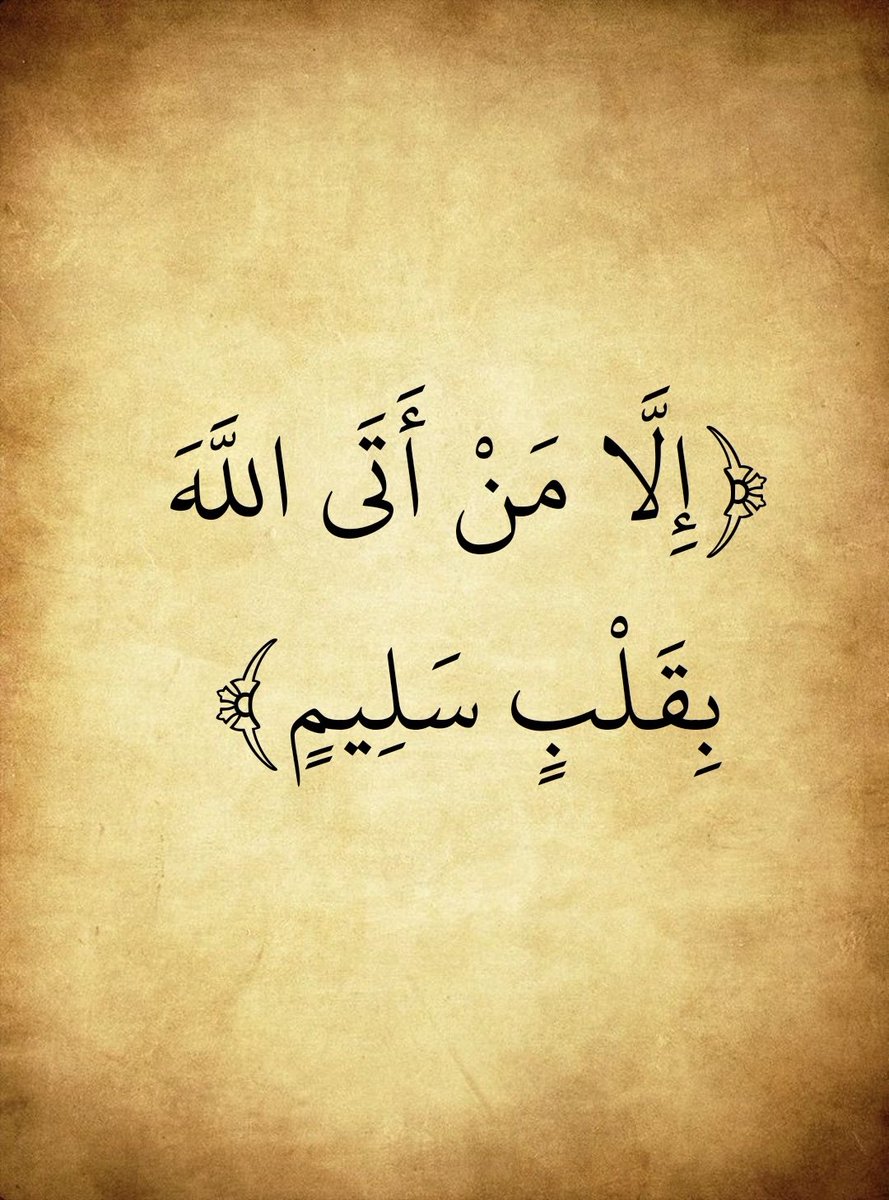 ﴿إِلَّا مَنْ أَتَى اللَّهَ
بِقَلْبٍ سَلِيمٍ﴾